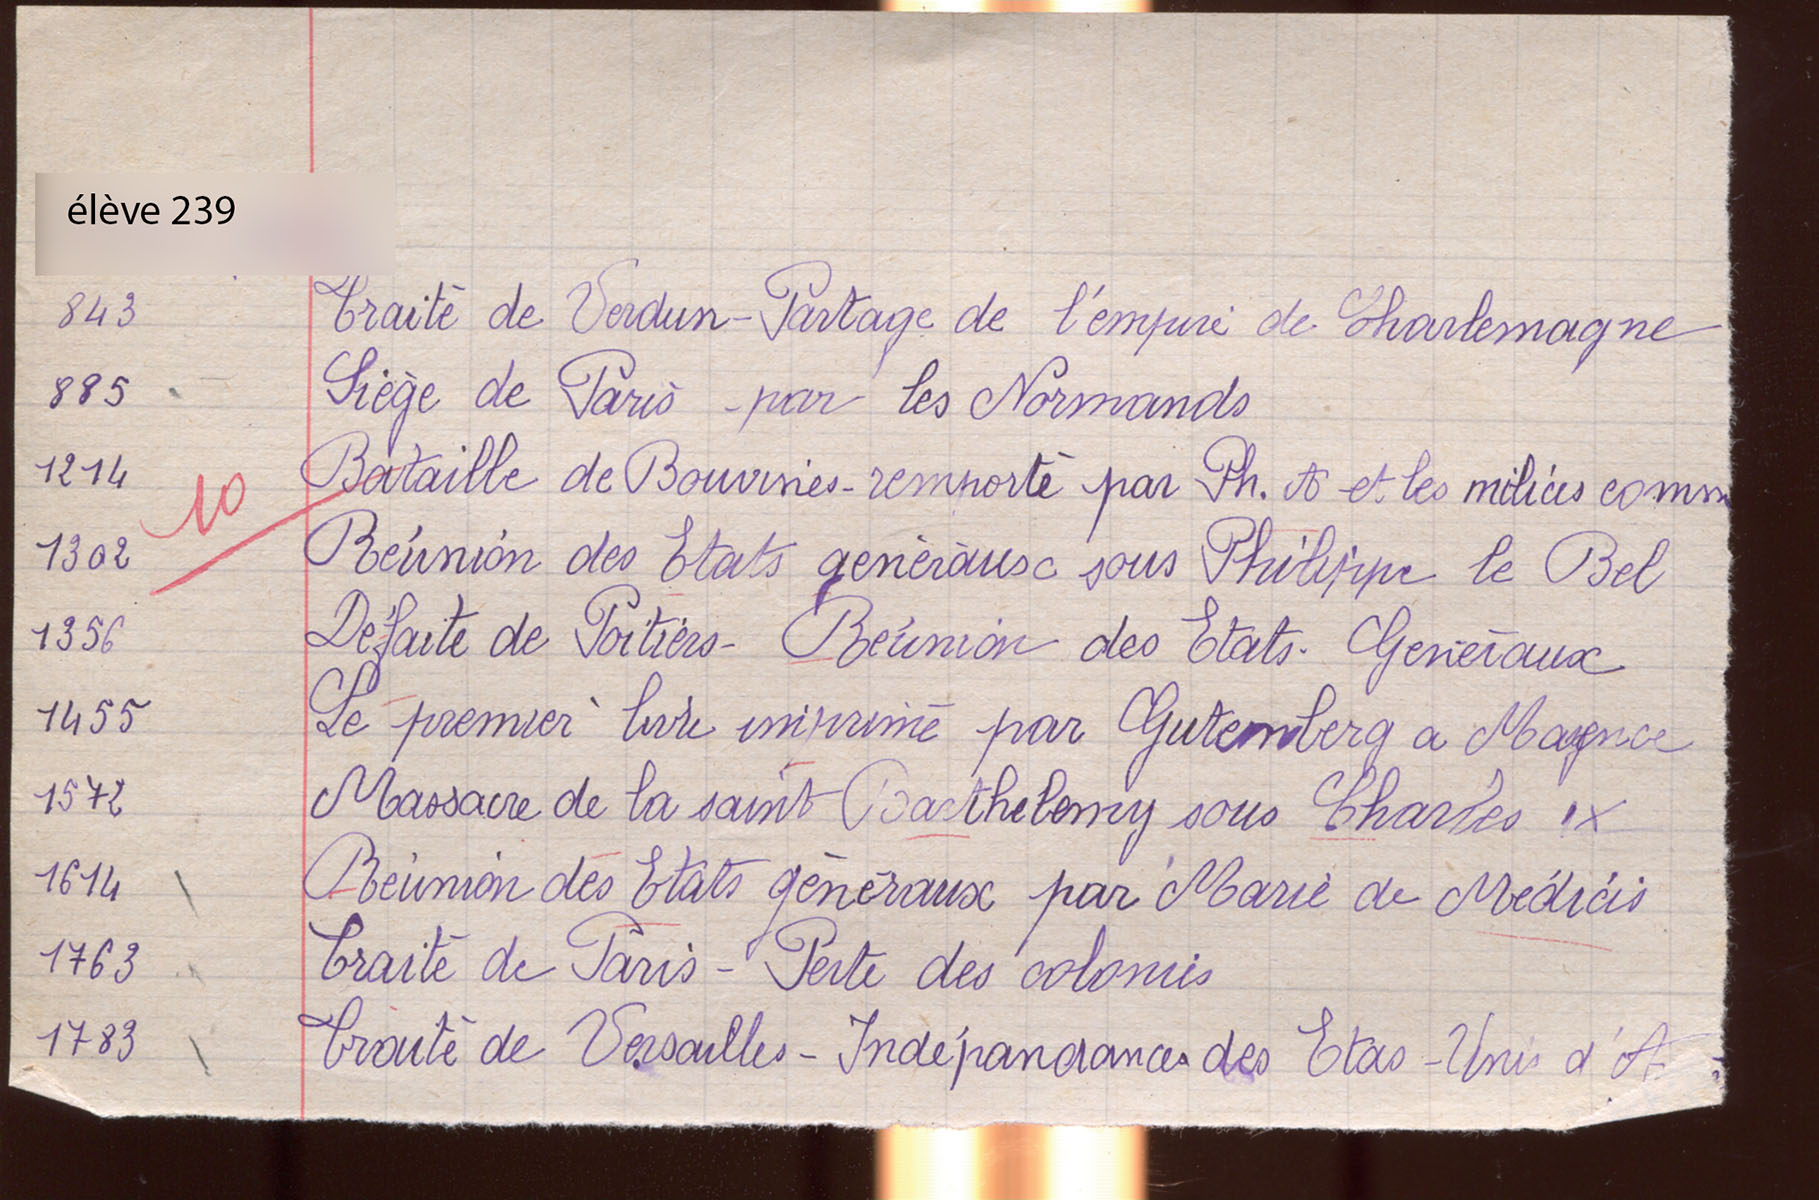 élève 239
843 Traité de Verdun - Partage de l'empire de Charlemagne
885 Siège de Paris par les Normands
1214 Bataille de Bouvines - remporté par Ph. A et les milices comm
10
1302 Réunion des Etats genéraux sous Philippe le Bel
1356 Défaite de Poitiers - Réunion des Etats. Generaux
1455 Le premier livre imprimé par Gutemberg a Mayence
1572 Massacre de la saint Barthelemy sous Charles IX
1614 Réunion des Etats généraux par Marie de Médicis
1763 Traité de Paris - Perte des colonies
1783 Traité de Versailles - Indépandances des Etas - Unis d'A